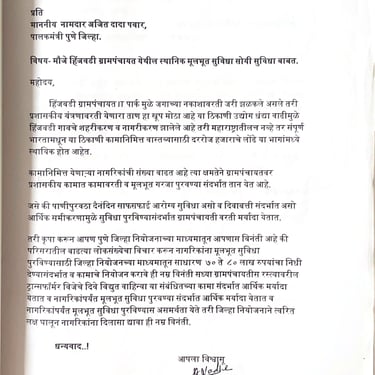 प्रति
माननीय नामदार अजित दादा पवार,
पालकमंत्री पुणे जिल्हा.
विषय- मौजे हिंजवडी ग्रामपंचायत येथील स्थानिक मूलभूत सुविधा सोयी सुविधा बाबत.
महोदय,
हिंजवडी ग्रामपंचायत।। पार्क मुळे जगाच्या नकाशावरती जरी झळकले असले तरी
प्रशासकीय यंत्रणावरती येणारा ताण हा खूप मोठा आहे या ठिकाणी उद्योग धंद्या वाढीमुळे
हिंजवडी गावचे शहरीकरण व नागरीकरण झालेले आहे तरी महाराष्ट्रातीलच नव्हे तर संपूर्ण
भारतामधून या ठिकाणी कामानिमित्त वास्तव्यासाठी दररोज हजारचे लोंढे या भागांमध्ये
स्थायिक होत आहेत.
कामानिमित्त येणाऱ्या नागरिकांची संख्या वाढत आहे त्या क्षमतेने ग्रामपंचायतवर
प्रशासकीय कामात कामावरती व मूलभूत गरजा पुरवण्या संदर्भात तान येत आहे.
जसे की पाणीपुरवठा दैनंदिन साफसफाई आरोग्य सुविधा असो व दिवाबत्ती संदर्भात असो
आर्थिक समीकरणामुळे सुविधा पुरविण्यासंदर्भात ग्रामपंचायती वरती मर्यादा येतात.
तरी कृपा करून आपण पुणे जिल्हा नियोजनाच्या माध्यमातून आपणास विनंती आहे की
परिसरातील वाढत्या लोकसंख्येचा विचार करून नागरिकांना मूलभूत सुविधा
पुरविण्यासाठी जिल्हा नियोजनाच्या माध्यमातून साधारण ७० ते ८० लाख रुपयांचा निधी
देण्यासंदर्भात व कामाचे नियोजन करावे ही नम्र विनंती मध्या ग्रामपंचायतीस रस्त्यावरील
ट्रान्सफॉर्मर विजेचे दिवे विद्युत वाहिन्या या संबंधितच्या कामा संदर्भात आर्थिक मर्यादा
येतात व नागरिकांपर्यंत मूलभूत सुविधा पुरवण्या संदर्भात आर्थिक मर्यादा येतात व
नागरिकांपर्यंत मूलभूत सुविधा पुरविण्यास असमर्थता येते तरी जिल्हा नियोजनाने त्वरित
लक्ष घालून नागरिकांना दिलासा द्यावा ही नम्र विनंती.
धन्यवाद..!
आपला विश्वासू